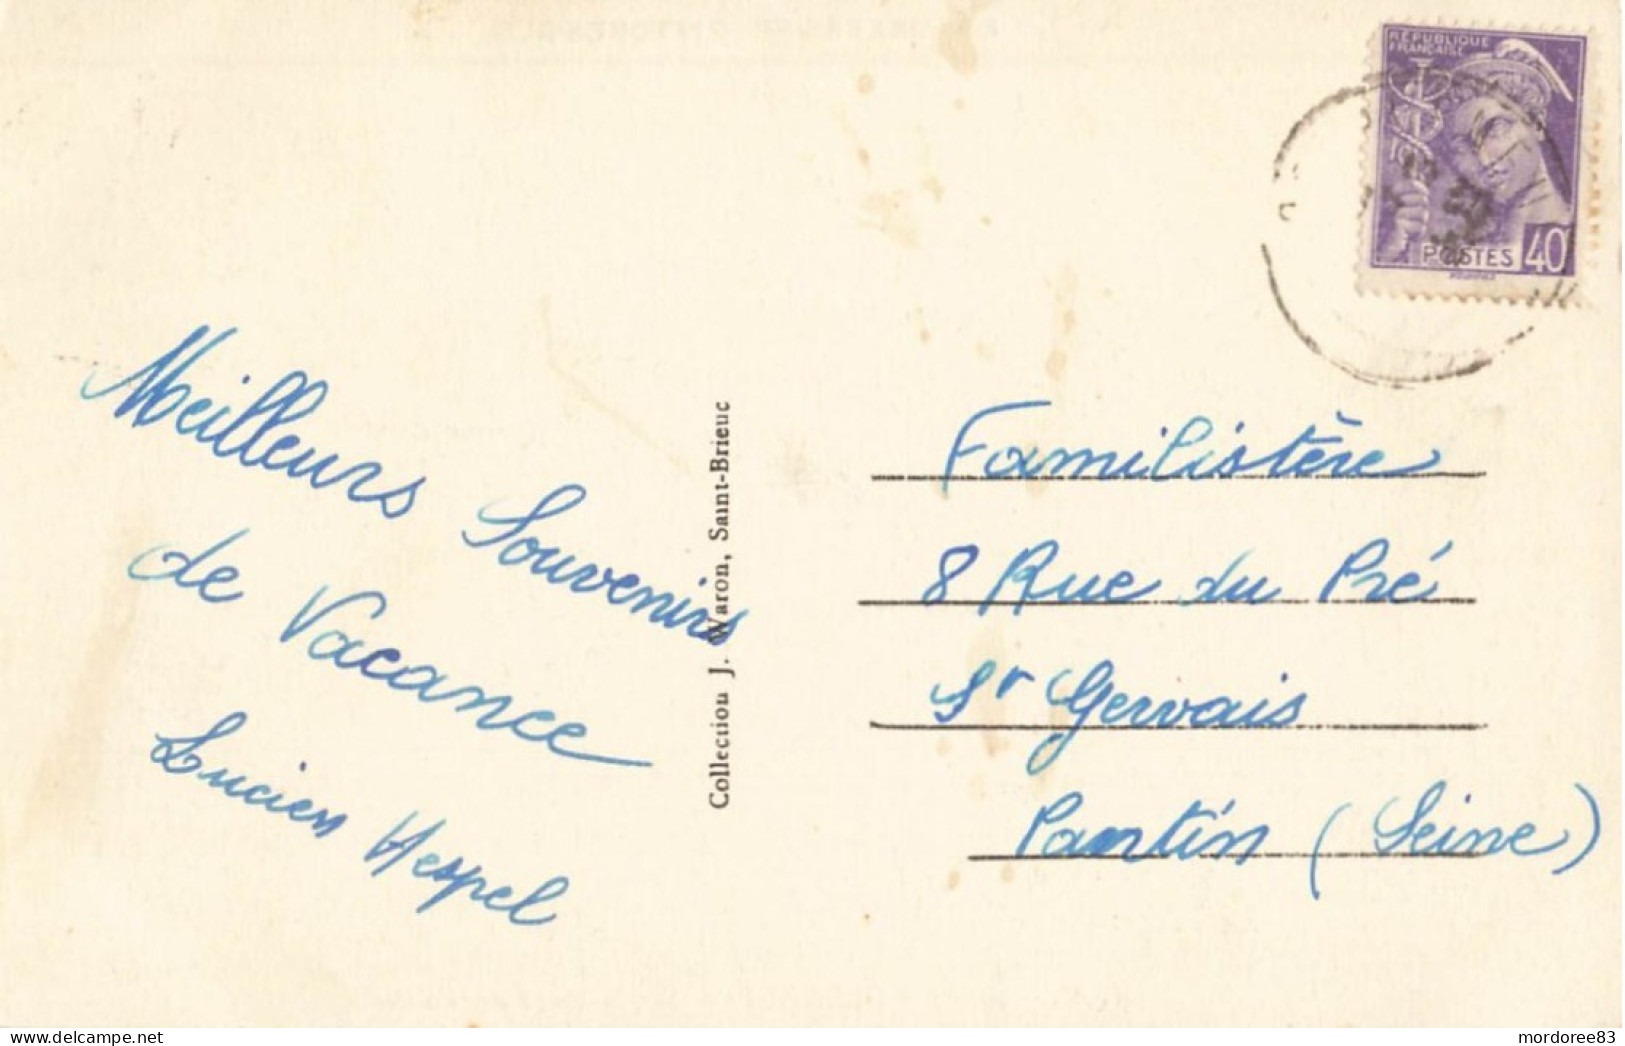 Meilleurs Souvenirs
de Vacance
Lucien Hespel
Collection J. Waron, Saint-Brieuc
RÉPUBLIQUE
FRANÇAISE
POSTES 40
Familistère
8 Rue du Pré
St Gervais
Pantin (Seine)
mordoree83